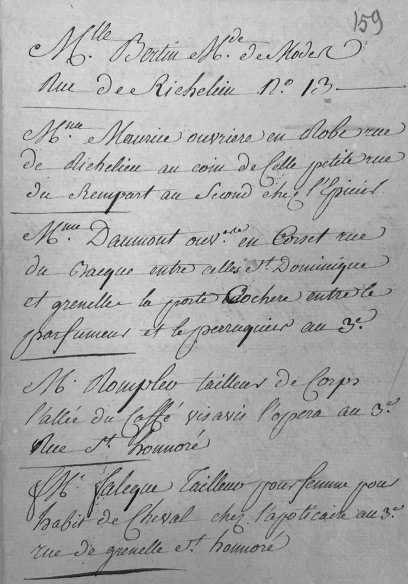 159
Mlle. Bertin Mde. de Modes
Rue de Richelieu No. 13
Mme. Maurice ouvriere en Robe rue
de Richelieu au coin de Celle petite rue
du Rempart au Second chez l'Epicier
Mme. Daumont ouvere. en Corset rue
du Bacque entre celles St. Dominique
et grenelle la porte Cochere entre le
parfumeur et le perruquier au 3e.
Mr. tailleur de Corps
l'allée du Caffé visavis l'opera au 3e.
Rue St. honnoré
Mr. Tailleur pour femme pour
habit de Cheval chez l'apoticaire au 3e.
rue de grenelle St. honnoré